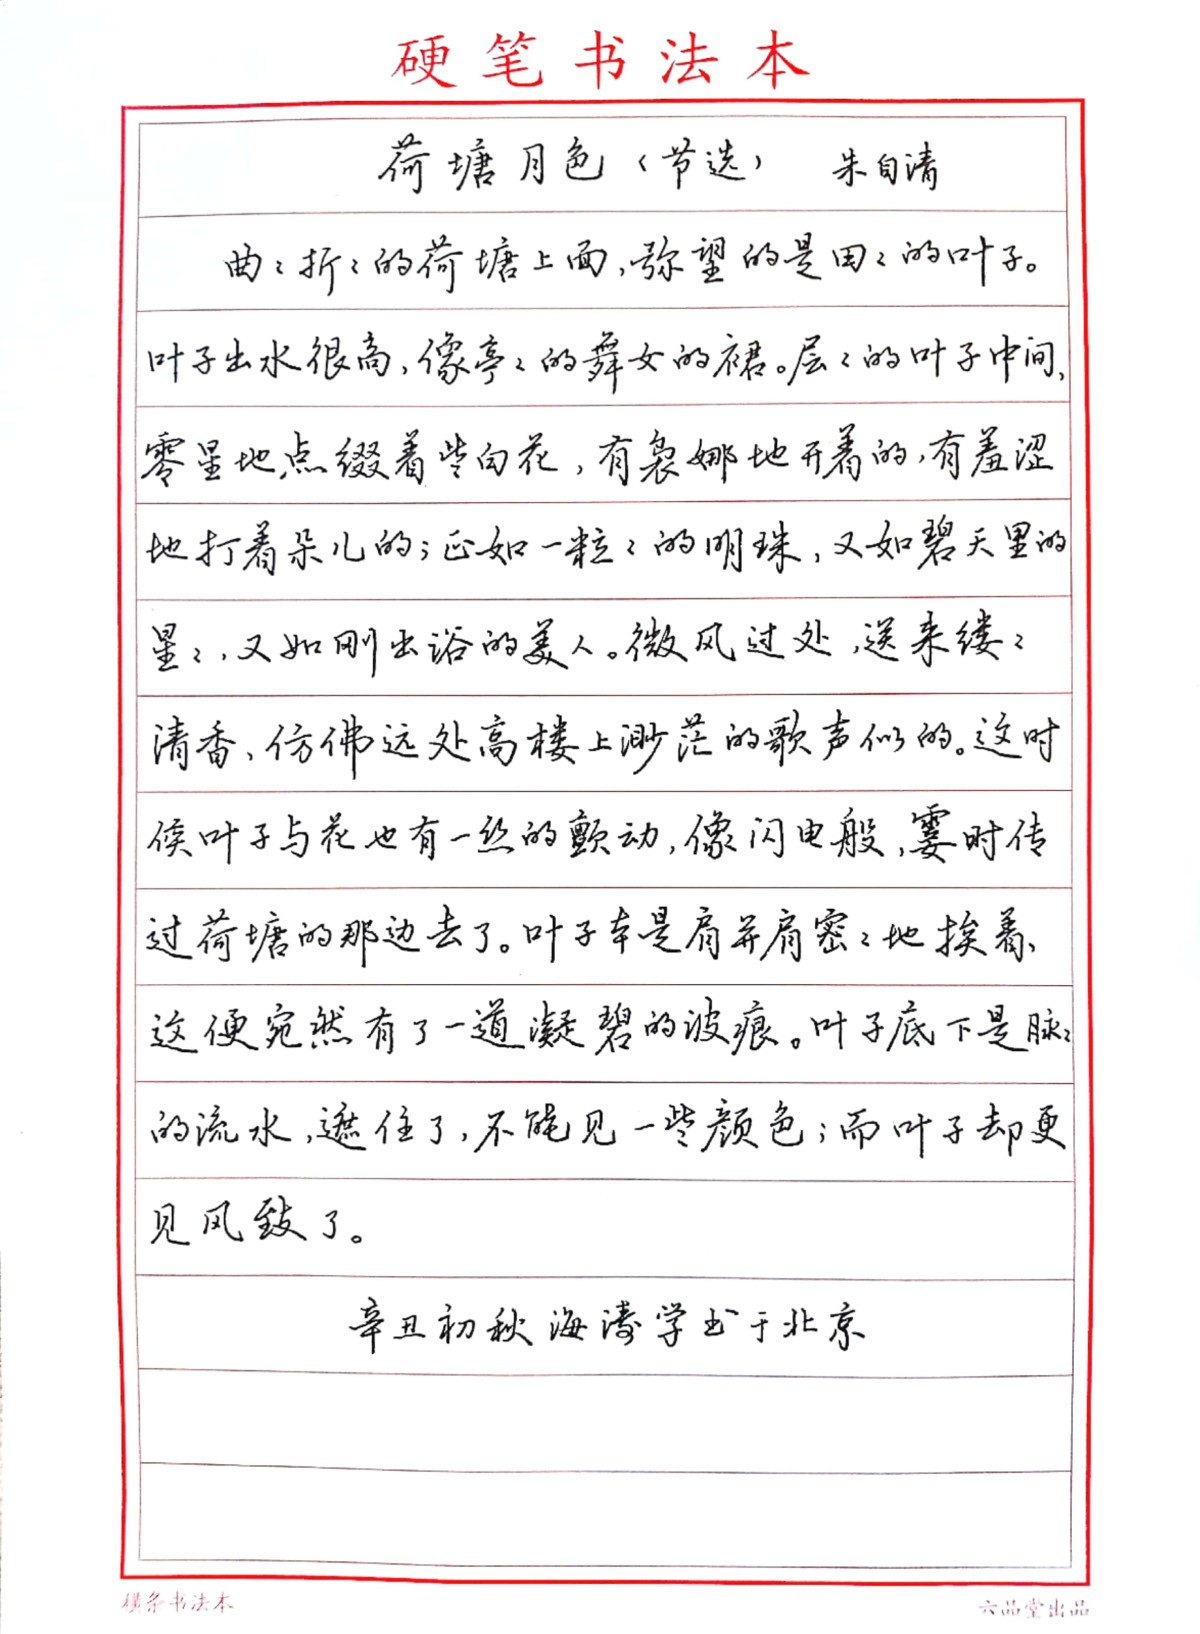 硬笔书法本
荷塘月色（节选） 朱自清
曲々折々的荷塘上面,弥望的是田々的叶子。
叶子出水很高,像亭々的舞女的裙。层々的叶子中间,
零星地点缀着些白花,有袅娜地开着的,有羞涩
地打着朵儿的;正如一粒々的明珠,又如碧天里的
星々,又如刚出浴的美人。微风过处,送来缕々
清香,仿佛远处高楼上渺茫的歌声似的。这时
候叶子与花也有一丝的颤动,像闪电般,霎时传
过荷塘的那边去了。叶子本是肩并肩密々地挨着,
这便宛然有了一道凝碧的波痕。叶子底下是脉々
的流水,遮住了,不能见一些颜色;而叶子却更
见风致了。
辛丑初秋海涛学书于北京
横条书法本 六品堂出品